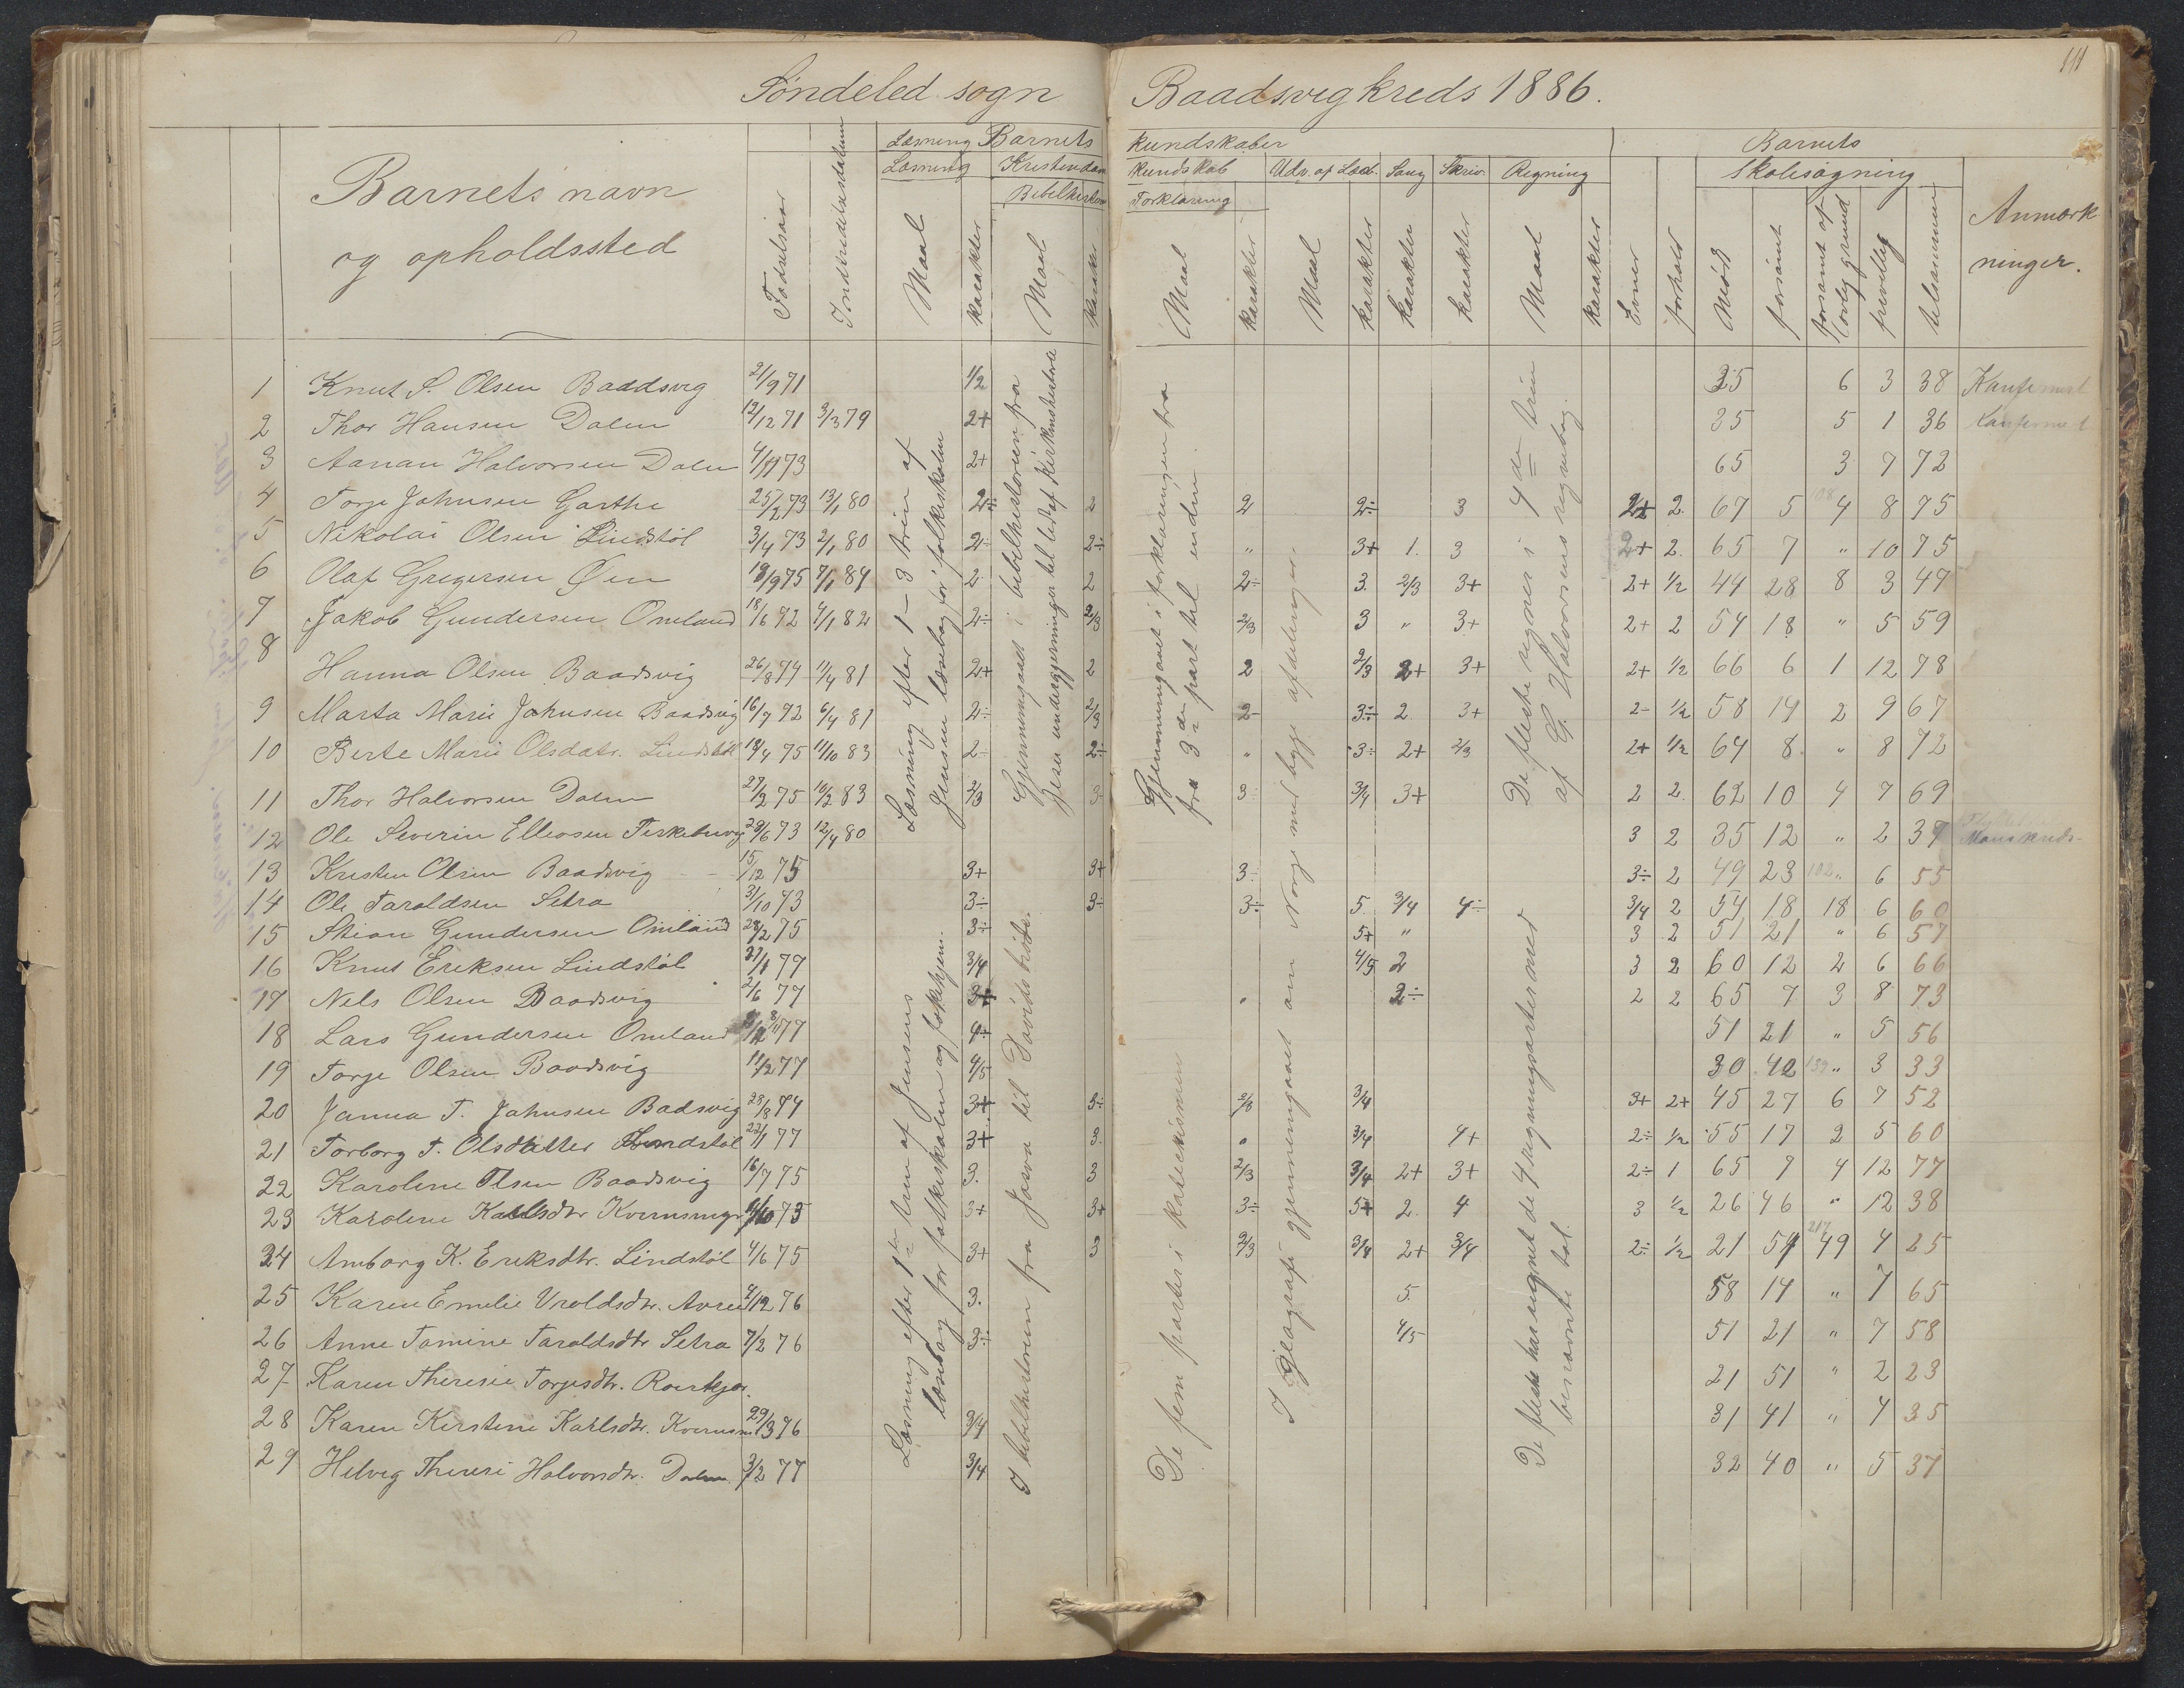 111
Søndeled sogn Baadsvig kreds 1886.
Barnets navn
og opholdssted
Fødselsaar
Indtrædelsesdatum
Læsning Barnets kundskaber
Læsning Kristendom kundskab Udv. af Læsb. Sang Skriv. Regning
Bibelhistorie Forklaring
Maal karakter Maal karakter Maal karakter Maal karakter karakter karakter Maal karakter
Evner forhold
Barnets
Skolesøgning
Mødt forsømt forsømt af lovlig grund frivillig tilsammen
Anmærk
ninger.
1 Knut S. Olsen Baadsvig 21/9 71 1/2 35 6 3 38 Konfirmert
2 Thor Hansen Dalen 12/12 71 3/3 79 2+ 35 5 1 36 Konfirmert
3 Aanan Halvorsen Dalen 4/11 73 2+ 65 3 7 72
4 Torje Johnsen Garthe 25/2 73 13/1 80 2÷ 2 2 2÷ 3 2+ 2. 67 5 108 4 8 75
5 Nikolai Olsen Lindstøl 3/4 73 2/1 80 2÷ 2÷ " 3+ 1. 3 2+ 2. 65 7 " 10 75
6 Olaf Gregersen Øen 18/9 75 7/1 84 2 2 2÷ 3. 2/3 3+ 2+ 1/2 44 28 8 3 47
7 Jakob Gundersen Omland 18/6 72 4/1 82 2÷ 2/3 2/3 3 " 3+ 2+ 2 54 18 " 5 59
8 Hanna Olsen Baadsvig 26/8 74 11/4 81 2+ 2 2 2/3 2+ 3+ 2+ 1/2 66 6 1 12 78
9 Marta Marie Johnsen Baadsvig 16/7 72 6/4 81 2÷ 2/3 2- 3÷ 2 3+ 2- 1/2 58 14 2 9 67
10 Berte Marie Olsdatr. Lindstøl 18/4 75 11/10 83 2- 2÷ " 3÷ 2+ 2/3 2+ 1/2 64 8 " 8 72
11 Thor Halvorsen Dalen 27/2 75 16/2 83 2/3 3 3÷ 3/4 3+ 2 2. 62 10 4 7 69
12 Ole Severin Ellevsen 29/6 73 12/4 80 3 2 35 12 " 2 37
13 Kristen Olsen Baadsvig 15/12 75 3+ 3+ 3- 3÷ 2 49 23 102 " 6 55
14 Ole Taraldsen Setra 31/10 73 3÷ 3÷ 3÷ 5 3/4 4÷ 3/4 2 54 18 18 6 60
15 Stian Gundersen Omland 28/2 75 3÷ 5+ " 3 2 51 21 " 6 57
16 Knut Eriksen Lindstøl 3/4 4/5 2 3 2 60 12 2 6 66
17 Nels Olsen Baadsvig 2/6 77 3+ " 2÷ 2 2 65 7 3 8 73
18 Lars Gundersen Omland 77 4÷ 51 21 " 5 56
19 Torje Olsen Baadsvig 11/12 77 4/5 30 42 139 " 3 33
20 Janna T. Johnsen Badsvig 28/8 74 3+ 3÷ 2/3 3/4 3+ 2+ 45 27 6 7 52
21 Torborg T. Olsdatter Lindstøl 22/1 77 3+ 3. " 3/4 4+ 2÷ 1/2 55 17 2 5 60
22 Karoline Olsen Baadsvig 16/7 75 3. 3 2/3 3/4 2+ 3+ 2÷ 1 65 7 4 12 77
23 Karoline Karlsdtr 73 3+ 3+ 3÷ 5+ 2. 4 3 1/2 26 46 " 12 38
24 Amborg K. Eriksdtr. Lindstøl 4/6 75 3+ 3 2/3 3/4 2+ 3/4 2÷ 1/2 21 51 217 49 4 25
25 Karen Emelie Vroldsdtr. 4/12 76 3. 5. 58 14 " 7 65
26 Anne Tomine Taraldsdtr Setra 7/2 76 3÷ 4/5 51 21 " 7 58
27 Karen Theresie Torjesdtr. 21 51 " 2 23
28 Karen Kirstine Karlsdtr. 29/3 76 3/4 31 41 " 4 35
29 Helvig Therese Halvorsdtr. Dalen 3/2 77 3/4 32 40 " 5 37
Læsning efter 1-3 trin af
Jensens læsebog for folkeskolen
Gjennemgaaet i bibelhistorien fra
Jesu undergjerninger til Kirkens historie
Gjennemgaaet i forklaringen fra
fra 3die part til enden.
De fleste regner i 4de trin
af G. Halvorsens regnebog.
Læsning efter 1ste trin af Jensens
læsebog for folkeskolen og folkehjem.
I bibelhistorien fra Josva til Davids
De fem parter i katechismen
I geografi gjennemgaaet om Norge med afdelinger.
De fleste har regnet de 4 regningsarter med
benævnte tal.